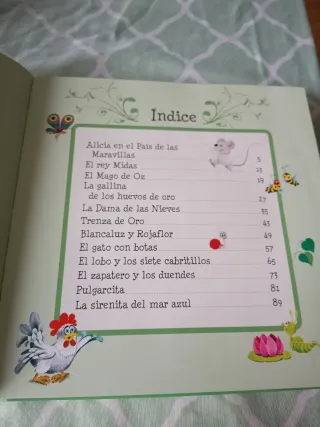 Índice
Alicia en el País de las
Maravillas 5
El rey Midas 13
El Mago de Oz 19
La gallina
de los huevos de oro 27
La Dama de las Nieves 35
Trenza de Oro 43
Blancaluz y Rojaflor 49
El gato con botas 57
El lobo y los siete cabritillos 65
El zapatero y los duendes 73
Pulgarcita 81
La sirenita del mar azul 89